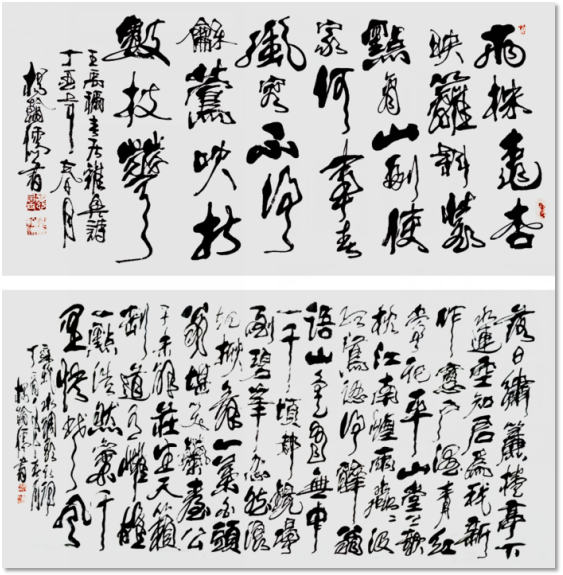 兩株桃杏
映籬斜裝
點商山副使
家何事春
風容不得
龢鶯吹折
數枝花
王禹偁春居雜興詩
丁酉年春月
楊翰儒書
落日繡簾捲亭下
水連空知君為我新
作窗戶溼青紅
常記平山堂上欹
枕江南煙雨杳杳沒
孤鴻認得醉翁
語山色有無中
一千頃都鏡淨
倒碧峰忽然浪
起掀舞一葉白頭
翁堪笑蘭臺公
子未解莊生天籟
剛道有雌雄
一點浩然氣千
里快哉風
蘇軾水調歌頭
丁酉年春月
楊翰儒書